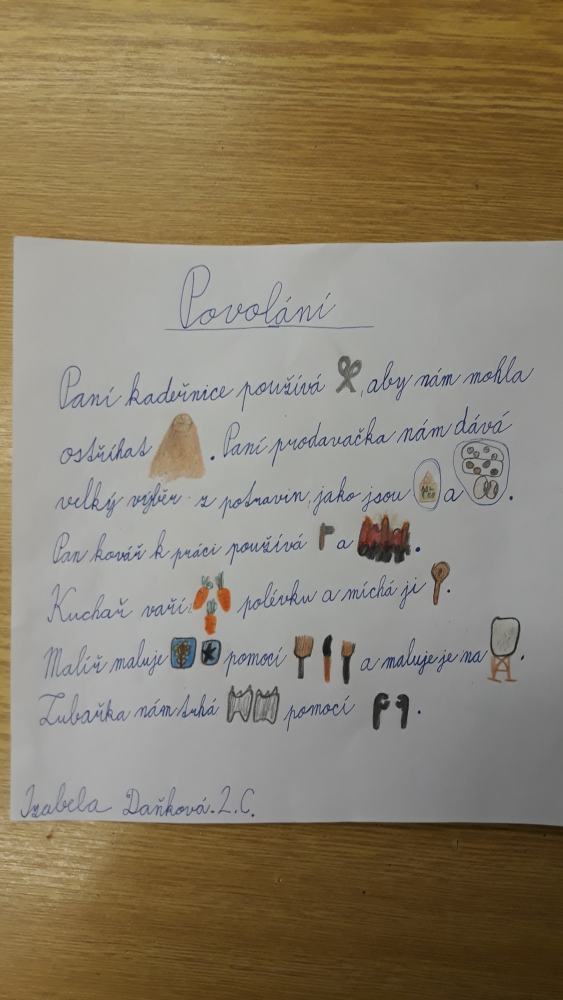 Povolání
Paní kadeřnice používá , aby nám mohla
ostříhat . Paní prodavačka nám dává
velký výběr z potravin, jako jsou a .
Pan kovář k práci používá a .
Kuchař vaří polévku a míchá ji .
Malíř maluje pomocí a maluje je na .
Zubařka nám trhá pomocí .
Izabela Daňková. 2.C.